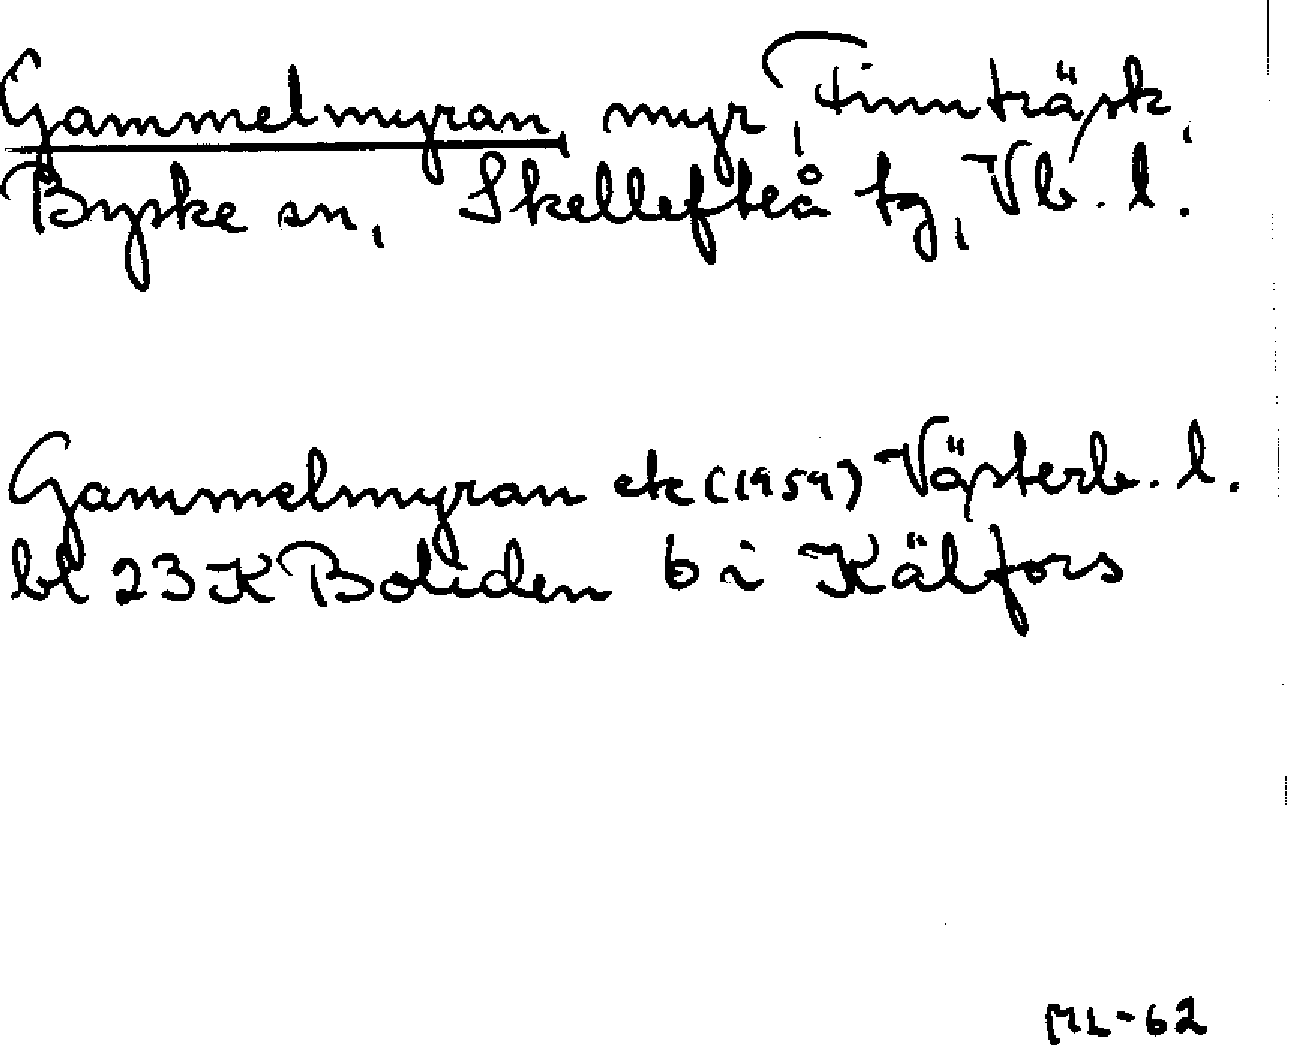 Gammelmyran, myr, Finnträsk,
Byske sn, Skellefteå tg, Vb. l.
Gammelmyran ek (1959) Västerb. l.
bl 23 K Boliden 6 i Kälfors
ML-62